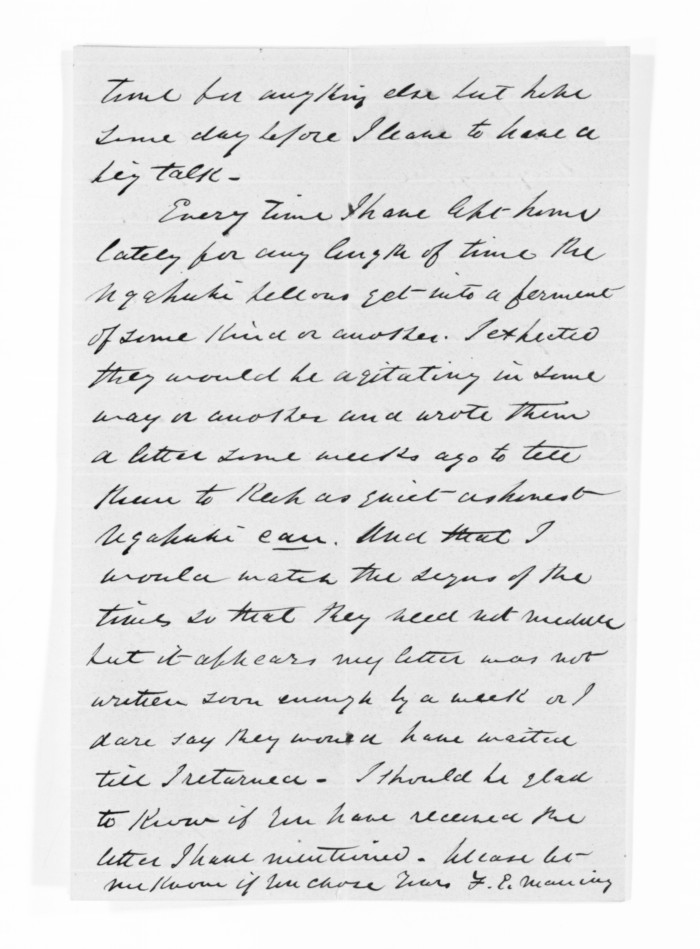 time for anything else but hope
some day before I leave to have a
big talk -
Every time I have left home
lately for any length of time the
Ngapuhi fellows get into a ferment
of some kind or another. I expected
they would be agitating in some
way or another and wrote them
a letter some weeks ago to tell
them to keep as quiet as honest
Ngapuhi can. And that I
would watch the signs of the
times so that they need not meddle
but it appears my letter was not
written soon enough by a week or I
dare say they would have waited
till I returned - I should be glad
to know if you have received the
letter I have mentioned - Please let
me know if you chose Yours F. E. Maning